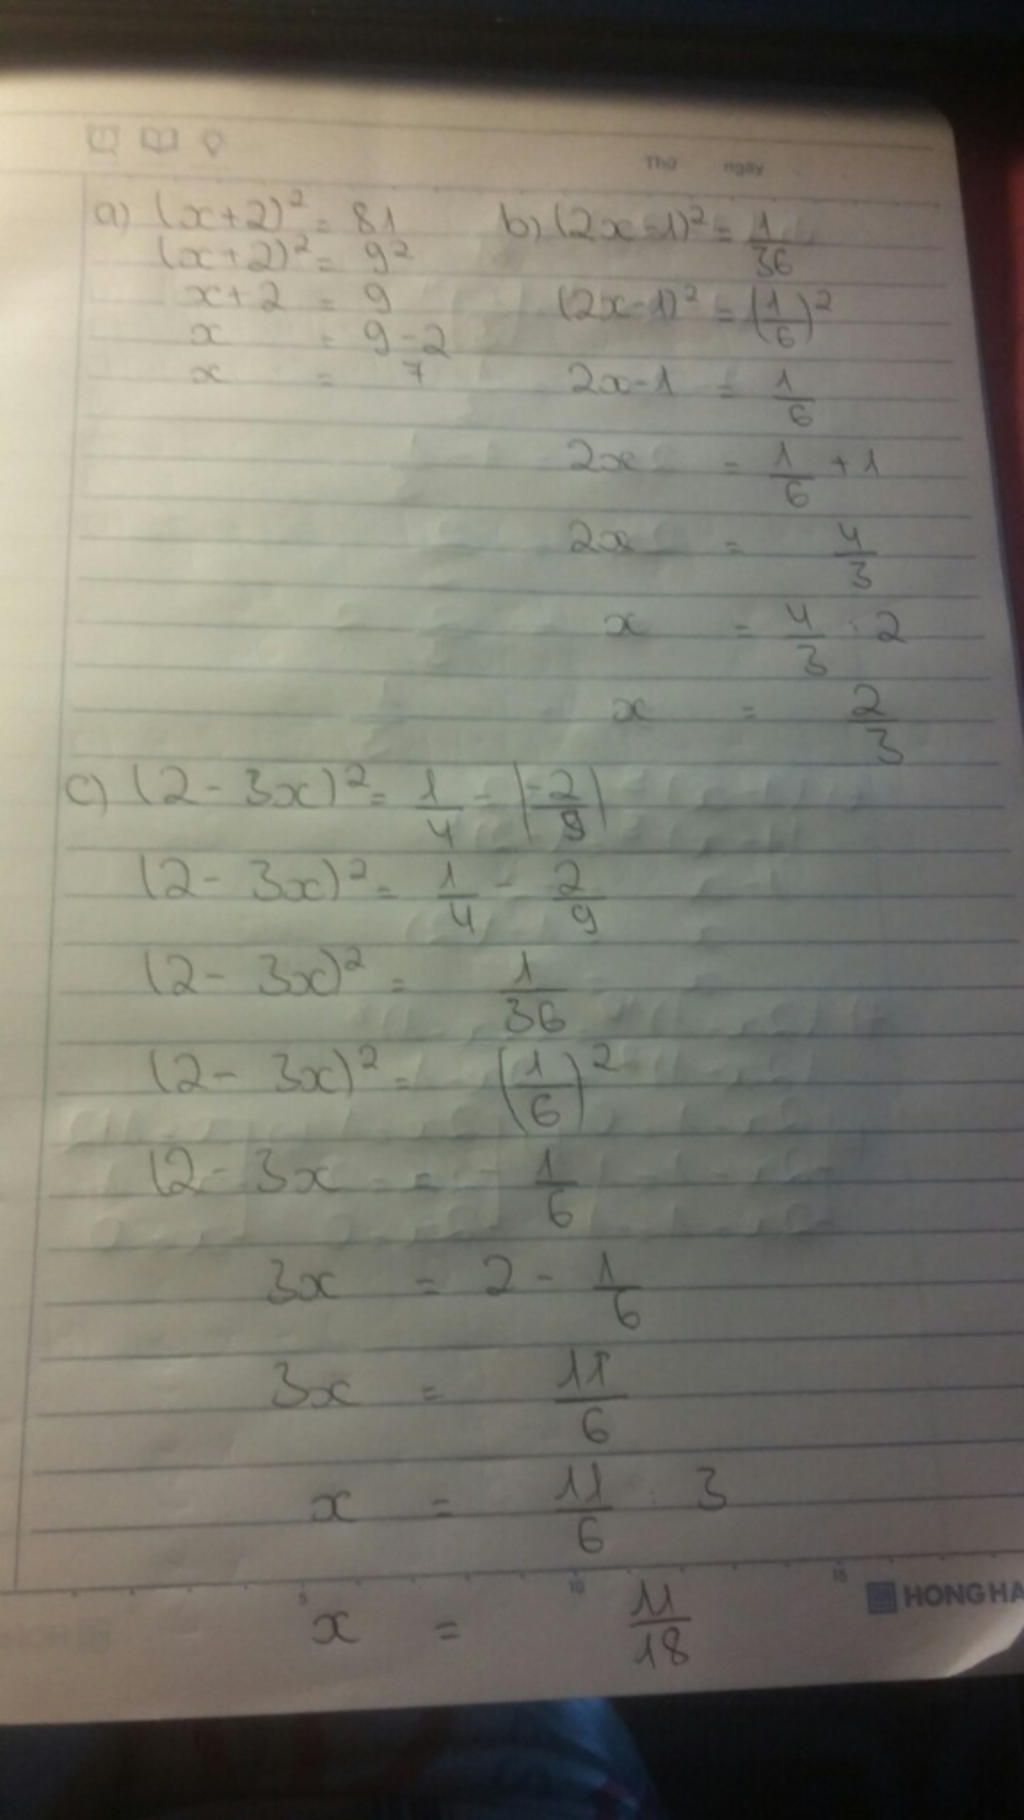 Thứ ngày
a) (x+2)² = 81
(x+2)² = 9²
x+2 = 9
x = 9-2
x = 7
b) (2x-1)² = 1/36
(2x-1)² = (1/6)²
2x-1 = 1/6
2x = 1/6 + 1
2x = 4/3
x = 4/3 : 2
x = 2/3
c) (2 - 3x)² = 1/4 - |-2/9|
(2 - 3x)² = 1/4 - 2/9
(2 - 3x)² = 1/36
(2 - 3x)² = (1/6)²
(2 - 3x = 1/6
3x = 2 - 1/6
3x = 11/6
x = 11/6 : 3
5 10 15
HONG HA
x = 11/18